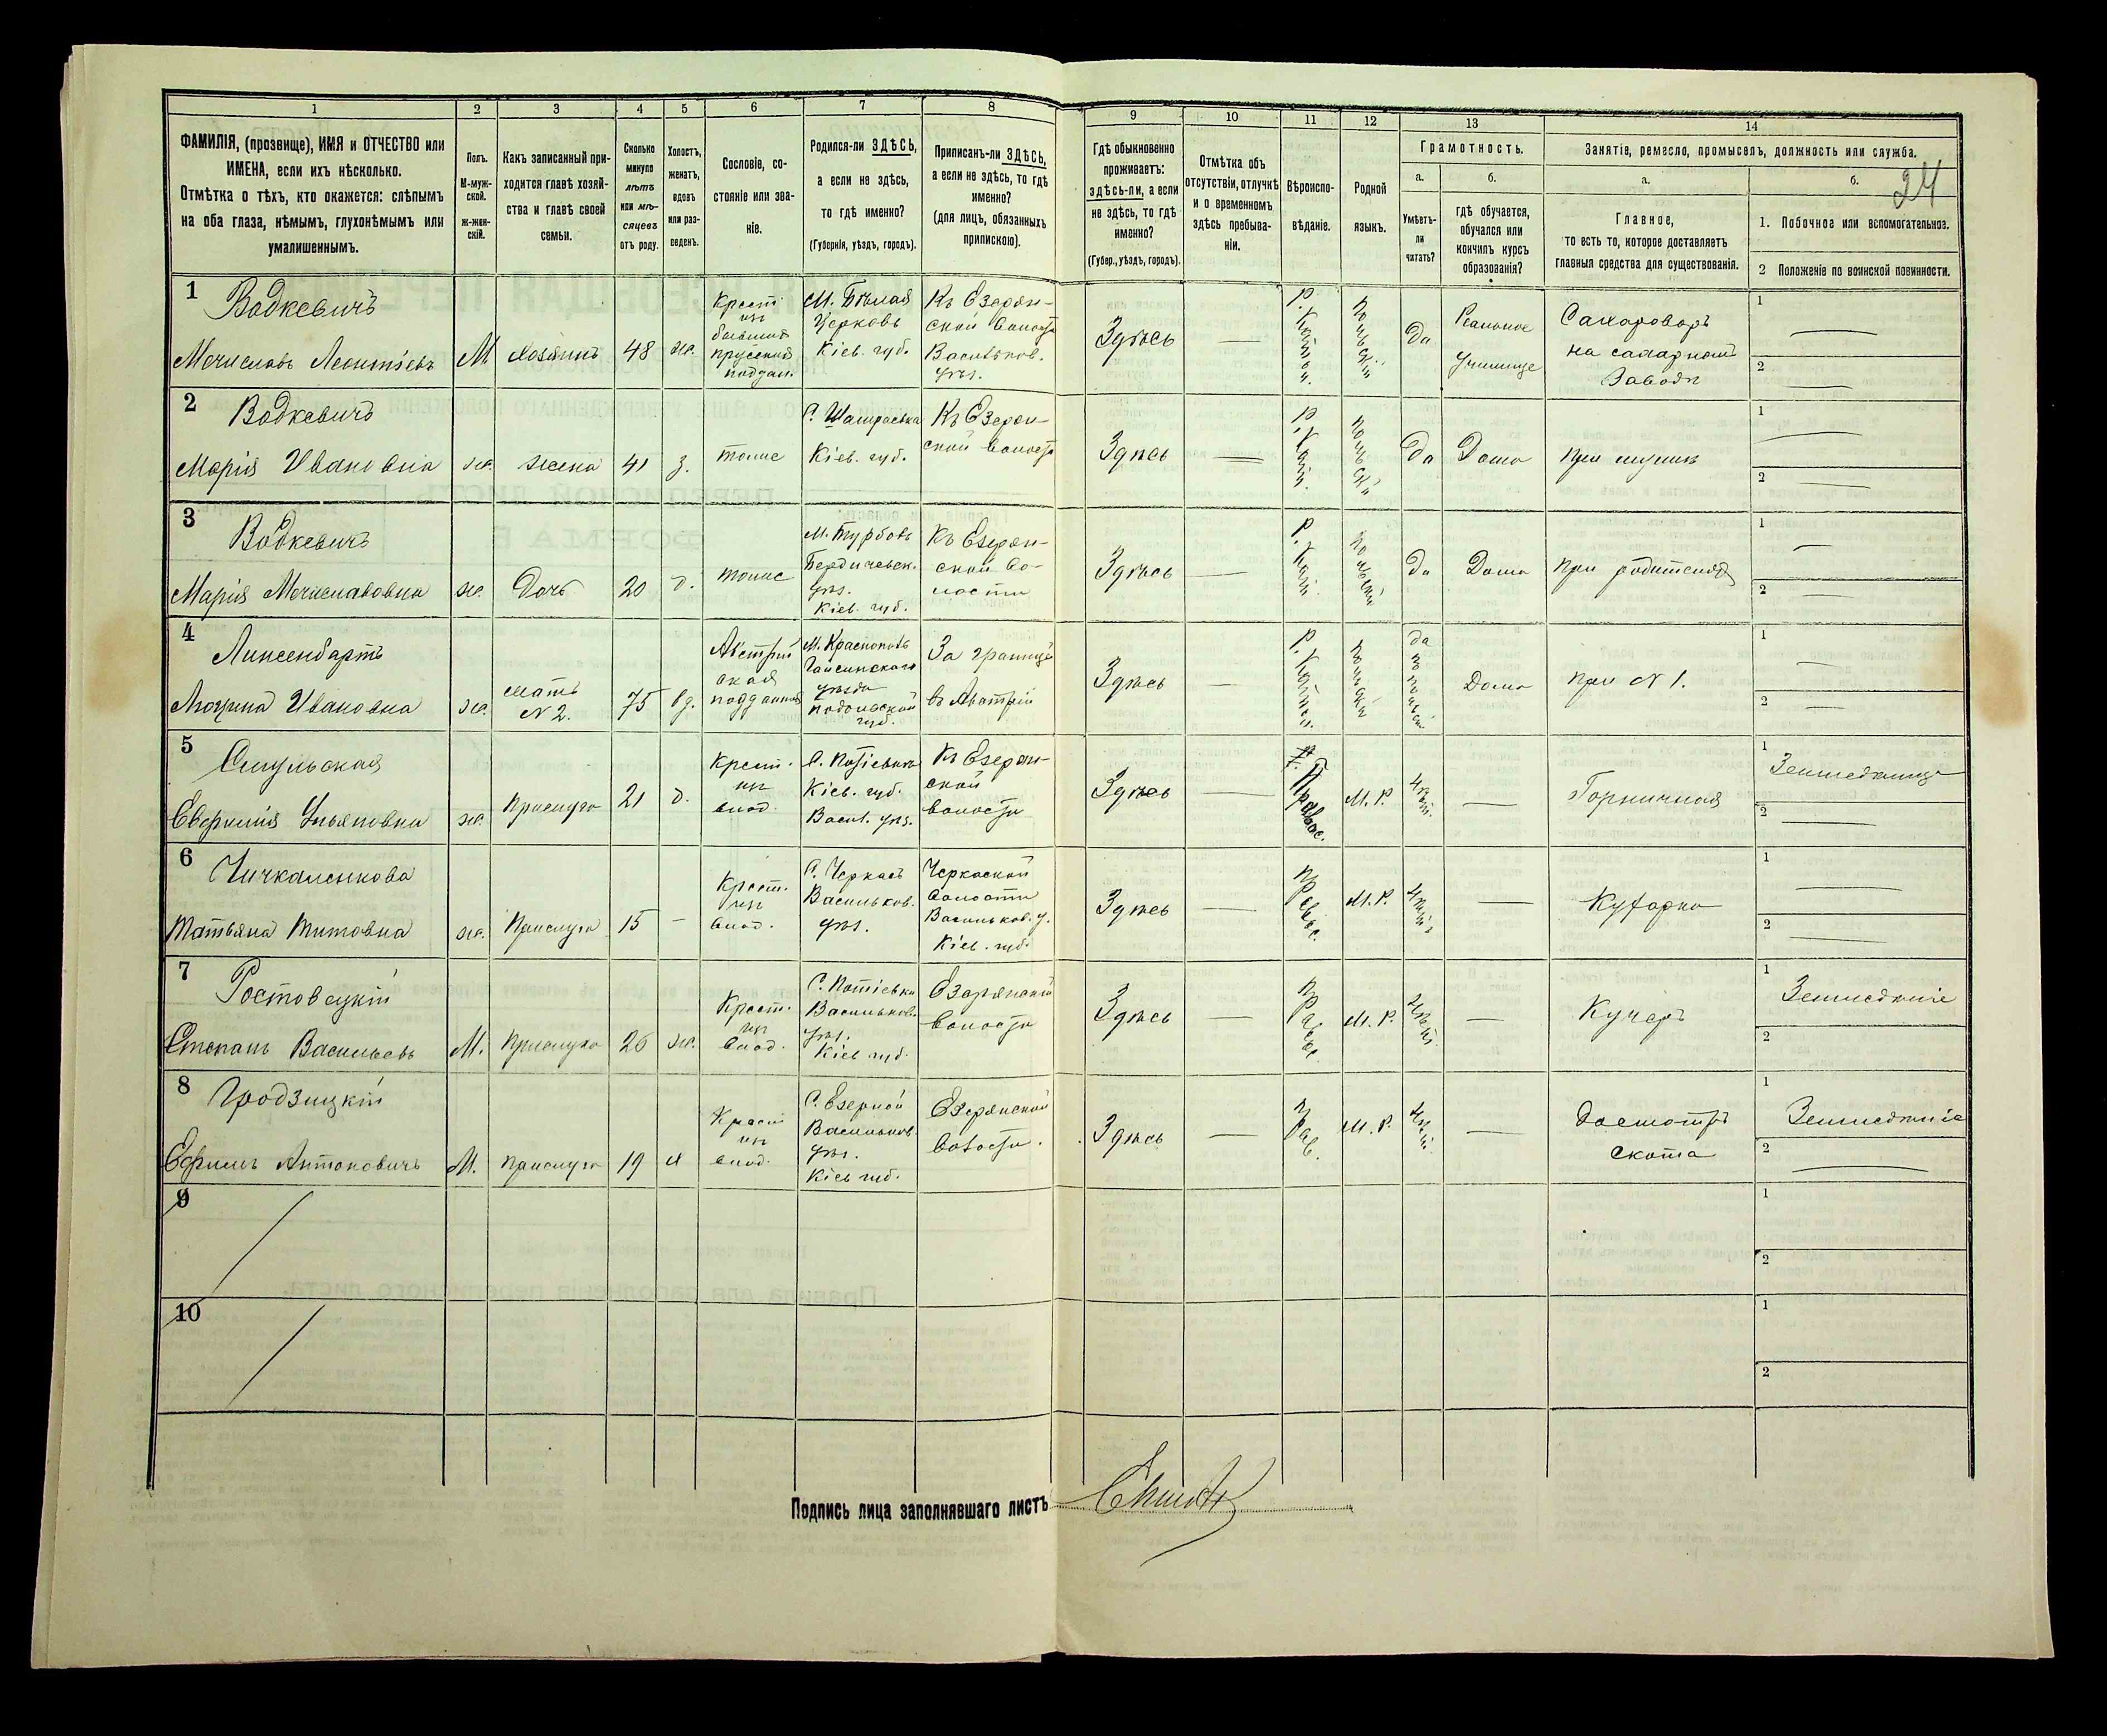 1 2 3 4 5 6 7 8 9 10 11 12 13 14
ФАМИЛІЯ, (прозвище), ИМЯ и ОТЧЕСТВО или
ИМЕНА, если ихъ нѣсколько.
Отмѣтка о тѣхъ, кто окажется: слѣпымъ
на оба глаза, нѣмымъ, глухонѣмымъ или
умалишеннымъ.
Полъ.
М-муж-
ской.
ж-жен-
скій.
Какъ записанный при-
ходится главѣ хозяй-
ства и главѣ своей
семьи.
Сколько
минуло
лѣтъ
или мѣ-
сяцевъ
отъ роду.
Холостъ,
женатъ,
вдовъ
или раз-
веденъ.
Сословіе, со-
стояніе или зва-
ніе.
Родился-ли ЗДѢСЬ,
а если не здѣсь,
то гдѣ именно?
(Губернія, уѣздъ, городъ).
Приписанъ-ли ЗДѢСЬ,
а если не здѣсь, то гдѣ
именно?
(для лицъ, обязанныхъ
припискою).
Гдѣ обыкновенно
проживаетъ:
здѣсь-ли, а если
не здѣсь, то гдѣ
именно?
(Губер., уѣздъ, городъ).
Отмѣтка объ
отсутствіи, отлучкѣ
и о временномъ
здѣсь пребыва-
ніи.
Вѣроиспо-
вѣданіе.
Родной
языкъ.
Грамотность.
а.
Умѣетъ-
ли
читать?
б.
гдѣ обучается,
обучался или
кончилъ курсъ
образованія?
Занятіе, ремесло, промыселъ, должность или служба.
а.
Главное,
то есть то, которое доставляетъ
главныя средства для существованія.
б.
24
1. Побочное или вспомогательное.
2 Положеніе по воинской повинности.
1
Водкевичъ
Мечиславъ Леонтіевъ
М
хозяинъ
48
же.
Крест
изъ
бывших
прусских
поддан.
М. Бѣлая
Церковь
Кіев. губ.
Къ Езерян-
ской волости
Васильков.
уѣз.
Здѣсь
—
Р. Катол.
Польскій
Да
Реальное
Училище
Сахароваръ
на сахарномъ
Заводѣ
1 —
2 —
2
Водкевичъ
Марія Ивановна
же.
жена
41
з.
тоже
Кіев. губ.
Къ Езерян-
ской волости
Здѣсь
—
Р. Катол.
Польскій
Да
Дома
При мужѣ
1 —
2 —
3
Водкевичъ
Марія Мечиславовна
же.
Дочь
20
д.
тоже
М. Турбовъ
Бердичевск.
уѣз.
Кіев. губ.
Къ Езерян-
ской во-
лости
Здѣсь
—
Р. Катол.
Польскій
Да
Дома
При родителяхъ
1 —
2 —
4
Линсенбартъ
Людина Ивановна
же.
мать
N 2.
75
вд.
Австрій
ская
подданная
Гайсинскаго
уѣзда
Подольской
губ.
За границу
въ Австріи
Здѣсь
—
Р. Католич.
Польскій
да по польски
Дома
при N 1.
1 —
2 —
5
Евфимія Ульяновна
же.
Прислуга
21
д.
Крест.
изъ
влад.
Кіев. губ.
Васил. уѣз.
Къ Езерян-
ской
волости
Здѣсь
—
Правос.
М. Р.
—
Горничная
1 Земледѣлице
2 —
6
Чичкаленкова
Татьяна Титовна
же.
Прислуга
15
—
Крест.
изъ
влад.
С. Черкасъ
Васильков.
уѣз.
Черкаской
волости
Васильков. у.
Кіев. губ.
Здѣсь
—
Правос.
М. Р.
—
Кухарка
1 —
2 —
7
Ростовецкій
Степанъ Васильевъ
М.
Прислуга
26
же.
Крест.
изъ
влад.
С. Потіевка
Васильков.
уѣз.
Кіев губ.
Езерянской
волости
Здѣсь
—
Правос.
М. Р.
—
Кучеръ
1 Земледѣліе
2
8
Гродзицкій
Ефимъ Антоновичъ
М.
прислуга
19
х
Крест
изъ
влад.
С. Езерной
Васильков.
уѣз.
Кіев губ.
Езерянской
волости.
Здѣсь
—
Прав.
М. Р.
—
Досмотръ
Скота
1 Земледѣліе
2 —
9
1
2
10
1
2
Подпись лица заполнявшаго листъ